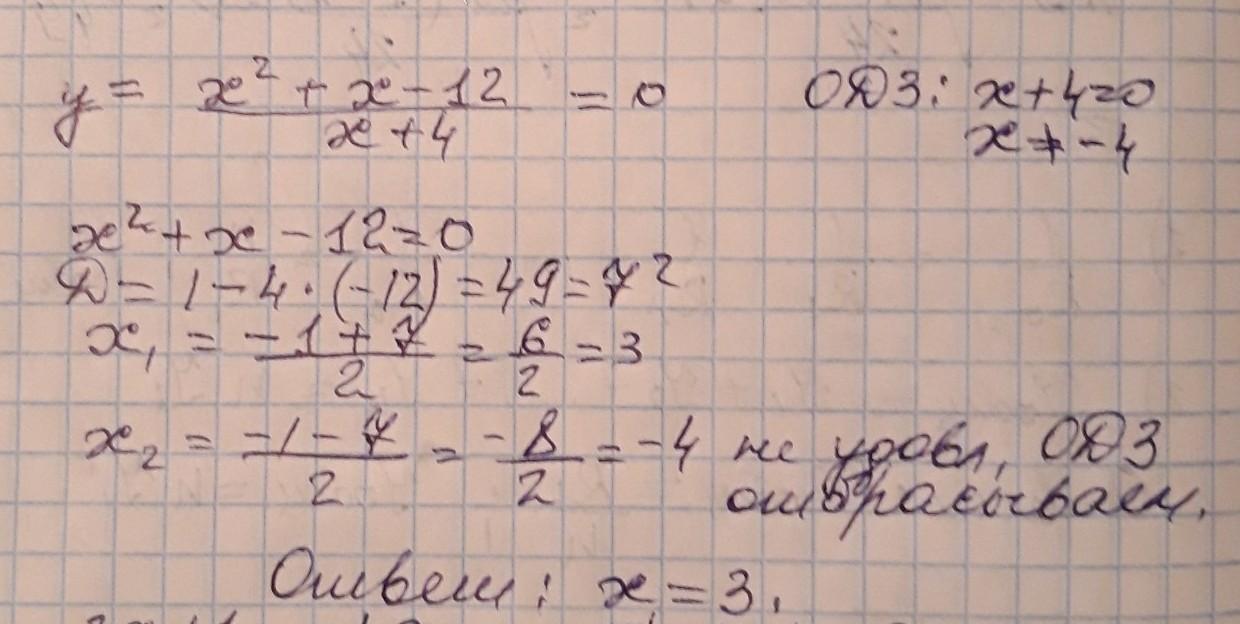 y = (x² + x - 12)/(x + 4) = 0 ОДЗ: x + 4 = 0
x ≠ -4
x² + x - 12 = 0
Д = 1 - 4 · (-12) = 49 = 7²
x₁ = (-1 + 7)/2 = 6/2 = 3
x₂ = (-1 - 7)/2 = -8/2 = -4 не удовл. ОДЗ
отбрасываем.
Ответ: x = 3.